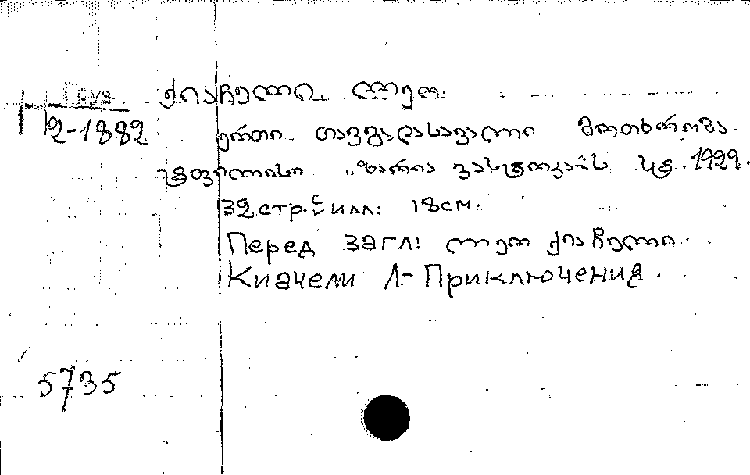 Груз.
2-1882
ქიაჩელი ლეო.
ერთი თავგადასავალი მოთხრობა
ტფილისი "ზარია ვოსტოკა"-ს სტ. 1929.
32 стр. с илл: 18 см.
Перед загл: ლეო ქიაჩელი.
Киачели Л- Приключения.
5735